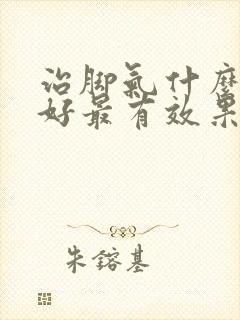 治脚氣什麼
好最有效果
朱鎔基